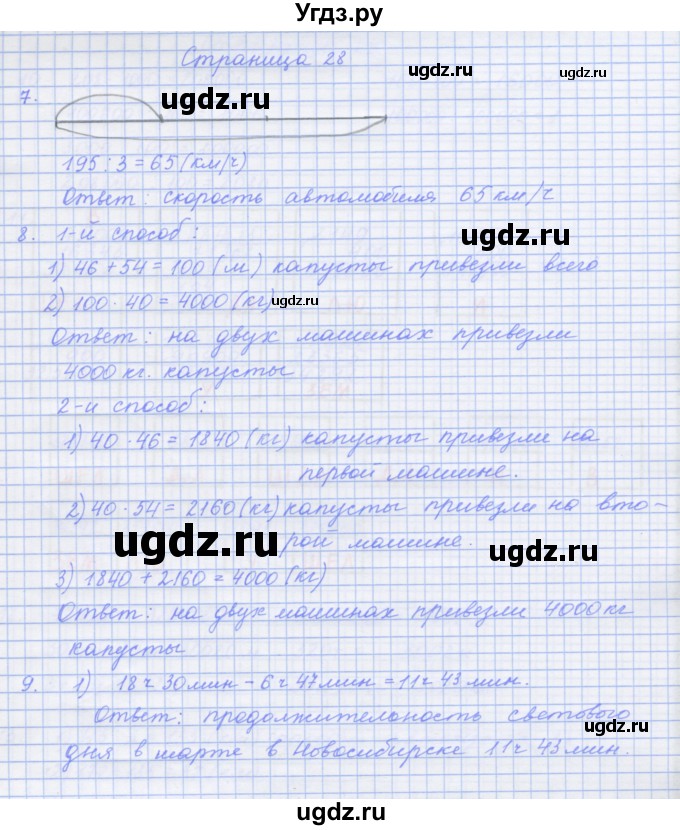 Угдз.ру
Страница 28
ugdz.ru
7.
ugdz.ru
ugdz.ru
195 : 3 = 65 (км/ч)
Ответ: скорость автомобиля 65 км/ч
8. 1-й способ:
ugdz.ru
1) 46 + 54 = 100 (м) капусты привезли всего
2) 100 · 40 = 4000 (кг)
ugdz.ru
Ответ: на двух машинах привезли
4000 кг. капусты
2-й способ:
1) 40 · 46 = 1840 (кг) капусты привезли на
первой машине.
2) 40 · 54 = 2160 (кг) капусты привезли на вто-
рой машине.
ugdz.ru
ugdz.ru
3) 1840 + 2160 = 4000 (кг)
Ответ: на двух машинах привезли 4000 кг
капусты
9. 1) 18 ч 30 мин - 6 ч 47 мин = 11 ч 43 мин.
Ответ: продолжительность светового
дня в марте в Новосибирске 11 ч 43 мин.
ugdz.ru